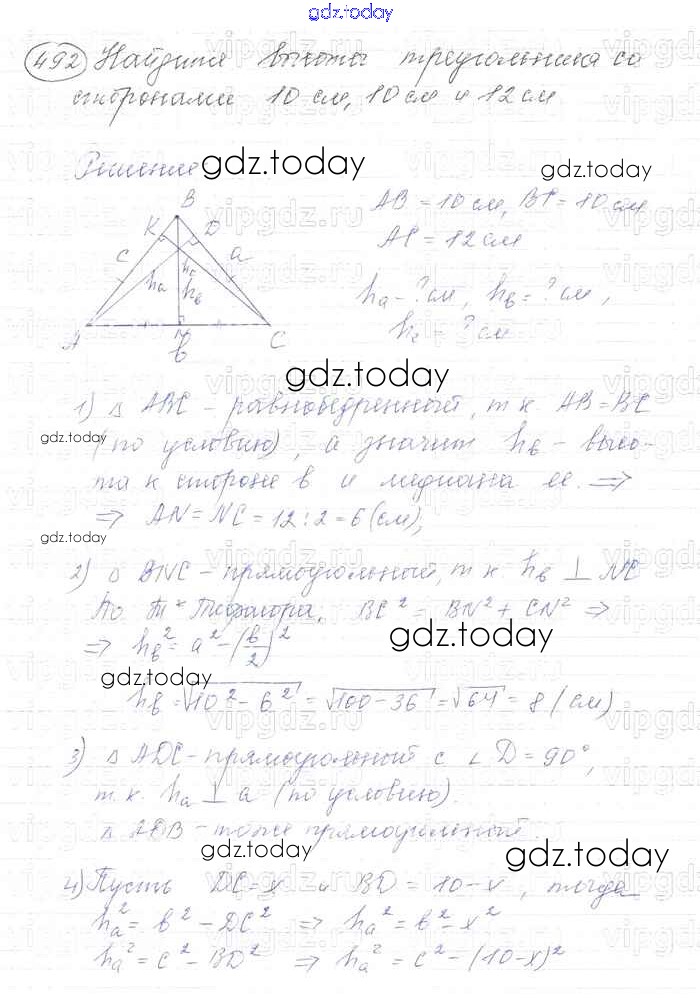 gdz.today
492 Найдите высоты треугольника со
сторонами 10 см, 10 см и 12 см
Решение
gdz.today
gdz.today
AB = 10 см, BC = 10 см
AC = 12 см
hₐ - ? см, h_в = ? см,
h_c - ? см
B
K
D
c
a
hₐ
h_c
h_в
A
N
в
C
gdz.today
1) Δ ABC - равнобедренный, т.к. AB = BC
gdz.today
(по условию), а значит h_в - высо-
та к стороне в и медиана ее. ⇒
⇒ AN = NC = 12 : 2 = 6 (см),
gdz.today
2) Δ BNC - прямоугольный, т.к. h_в ⊥ NC
По Т. Пифагора, BC² = BN² + CN² ⇒
⇒ h_в² = a² - (в/2)²
gdz.today
gdz.today
h_в = √10² - 6² = √100 - 36 = √64 = 8 (см)
3) Δ ADC - прямоугольный с ∠ D = 90°,
т.к. hₐ ⊥ a (по условию).
Δ ADB - тоже прямоугольный.
gdz.today
gdz.today
4) Пусть DC = x и BD = 10 - x, тогда
hₐ² = в² - DC² ⇒ hₐ² = в² - x²
hₐ² = c² - BD² ⇒ hₐ² = c² - (10 - x)²